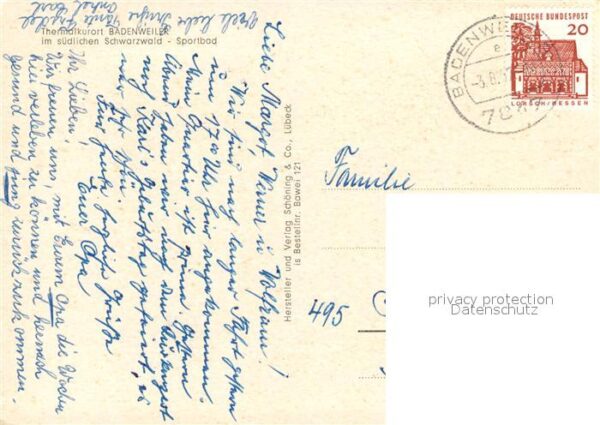 Thermalkurort BADENWEILER
im südlichen Schwarzwald - Sportbad
Liebe Margot Werner u. Wolfram!
Wir sind nach langer Fahrt gestern
um 17 Uhr hier angekommen.
Mein Quartier ist prima. Gestern
Abend haben wir noch
auf Karl's Geburtstag gefeiert, es
war sehr schön.
Für heute herzliche Grüße
Euer Opa
Ihr Lieben!
Wir freuen uns, mit Eurem Opa die Wochen
hier verleben zu können und hernach
gesund und jung zurück zu kommen.
Viele liebe Grüße
Onkel Karl
Hersteller und Verlag Schöning & Co., Lübeck
is Bestellnr. Bawei 121
DEUTSCHE BUNDESPOST
20
LORSCH/HESSEN
BADENWEI
e
-3.8.
7847
Familie
495
privacy protection
Datenschutz